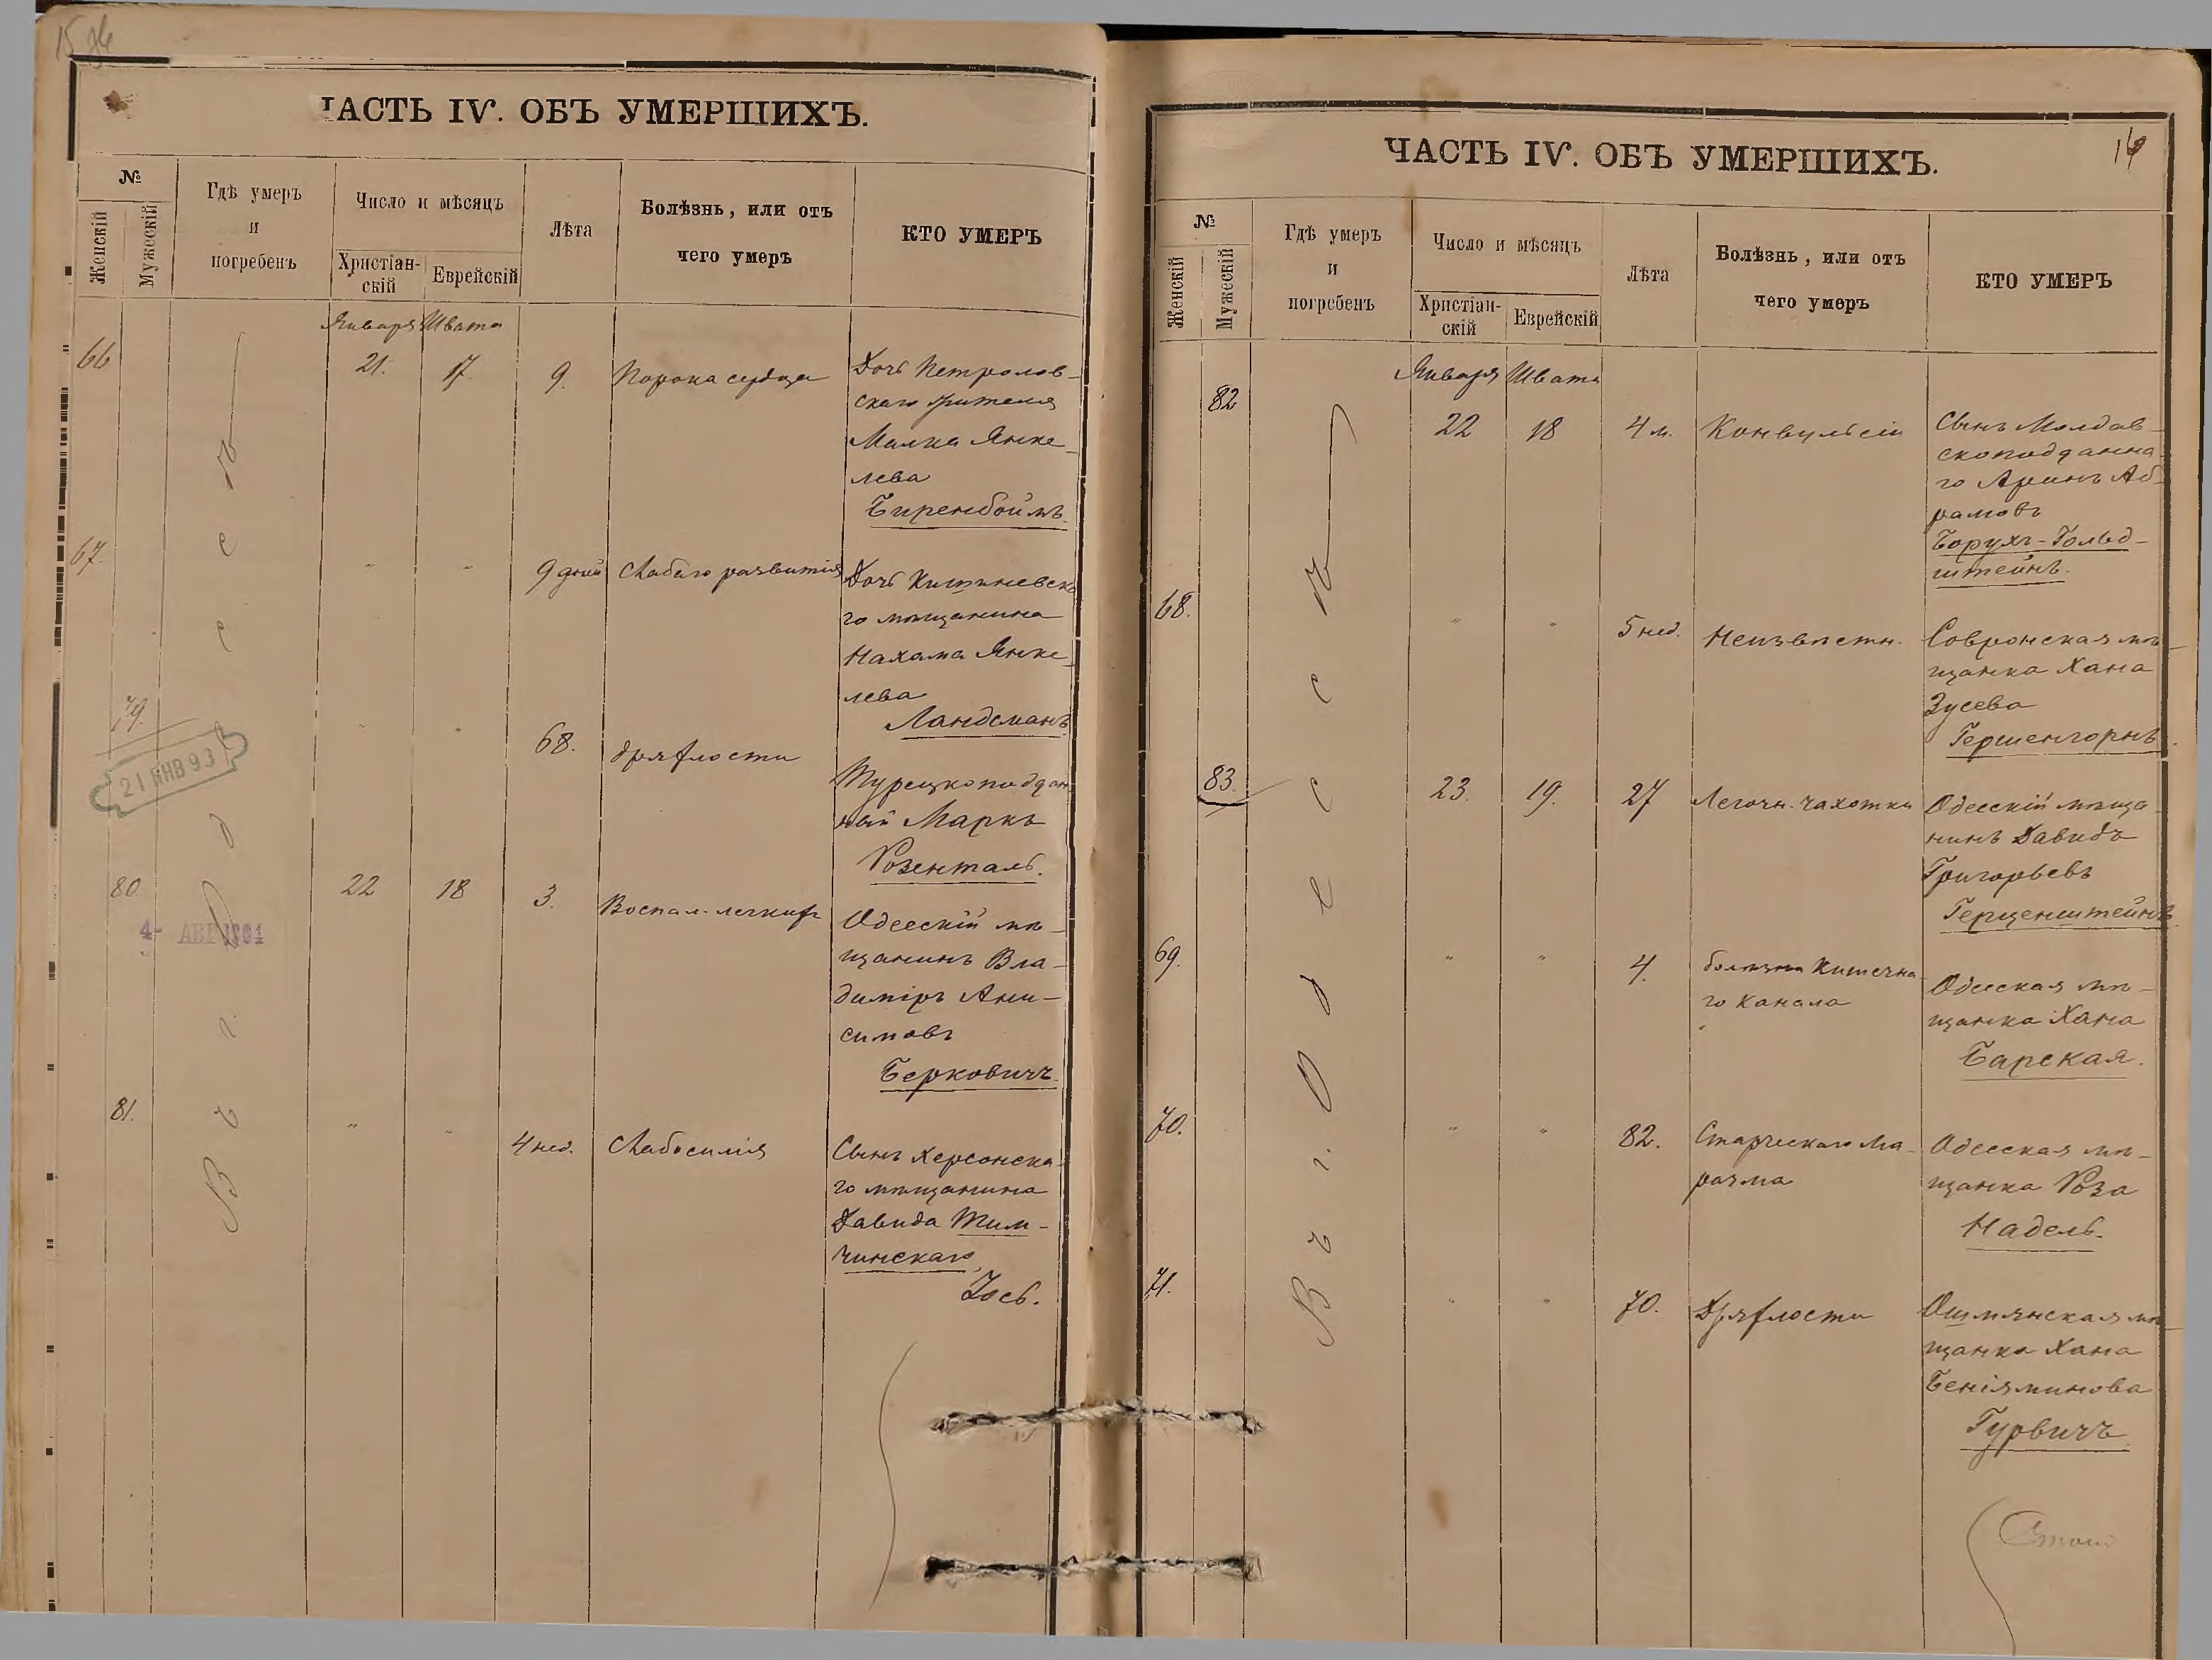 ЧАСТЬ IV. ОБЪ УМЕРШИХЪ.
№
Женскій
Мужескій
Гдѣ умеръ
и
погребенъ
Число и мѣсяцъ
Христіан-
скій
Еврейскій
Лѣта
Болѣзнь, или отъ
чего умеръ
КТО УМЕРЪ
Января Швата
Въ г. Одессѣ
66
21.
17.
9.
Порока сердца
Дочь Петровов-
скаго жителя
Малка Янке-
лева
Биренбоймъ.
67.
" "
9 дней
Слабаго развитія
Дочь Кишиневска
го мѣщанина
Нахама Янке-
лева
Ландсманъ
79.
21 ЯНВ 93
" "
68.
Дряхлости
Турецкоподдан
ный Маркъ
Розенталь.
80
4- АВГ 1904
22
18
3.
Воспал. легкихъ
Одесскій мѣ-
щанинъ Вла-
диміръ Ани-
симовъ
Берковичъ.
81.
" "
4 нед.
Слабосилія
Сынъ Херсонска-
го мѣщанина
Давида Тим-
чинскаго,
Іось.
ЧАСТЬ IV. ОБЪ УМЕРШИХЪ.
16
№
Женскій
Мужескій
Гдѣ умеръ
и
погребенъ
Число и мѣсяцъ
Христіан-
скій
Еврейскій
Лѣта
Болѣзнь, или отъ
чего умеръ
КТО УМЕРЪ
Января Швата
Въ г. Одессѣ
82
22
18
4 м.
Конвульсіи
Сынъ Молдав-
скоподданна-
го Аронъ Аб-
рамовъ
Борухъ-Гольд-
штейнъ.
68.
" "
5 нед.
Неизвѣстн.
Совронская мѣ-
щанка Хана
Зусева
Гершенгорнъ.
83.
23.
19.
27
Легочн. чахотки
Одесскій мѣща-
нинъ Давидъ
Григорьевъ
Герценштейнъ
69.
" "
4.
болѣзни кишечна-
го канала
Одесская мѣ-
щанка Хана
Барская.
70.
" "
82.
Старческаго ма-
разма
Одесская мѣ-
щанка Роза
Надель.
71.
" "
70.
Дряхлости
Ошмянская мѣ-
щанка Хана
Беніяминова
Гурвичъ.